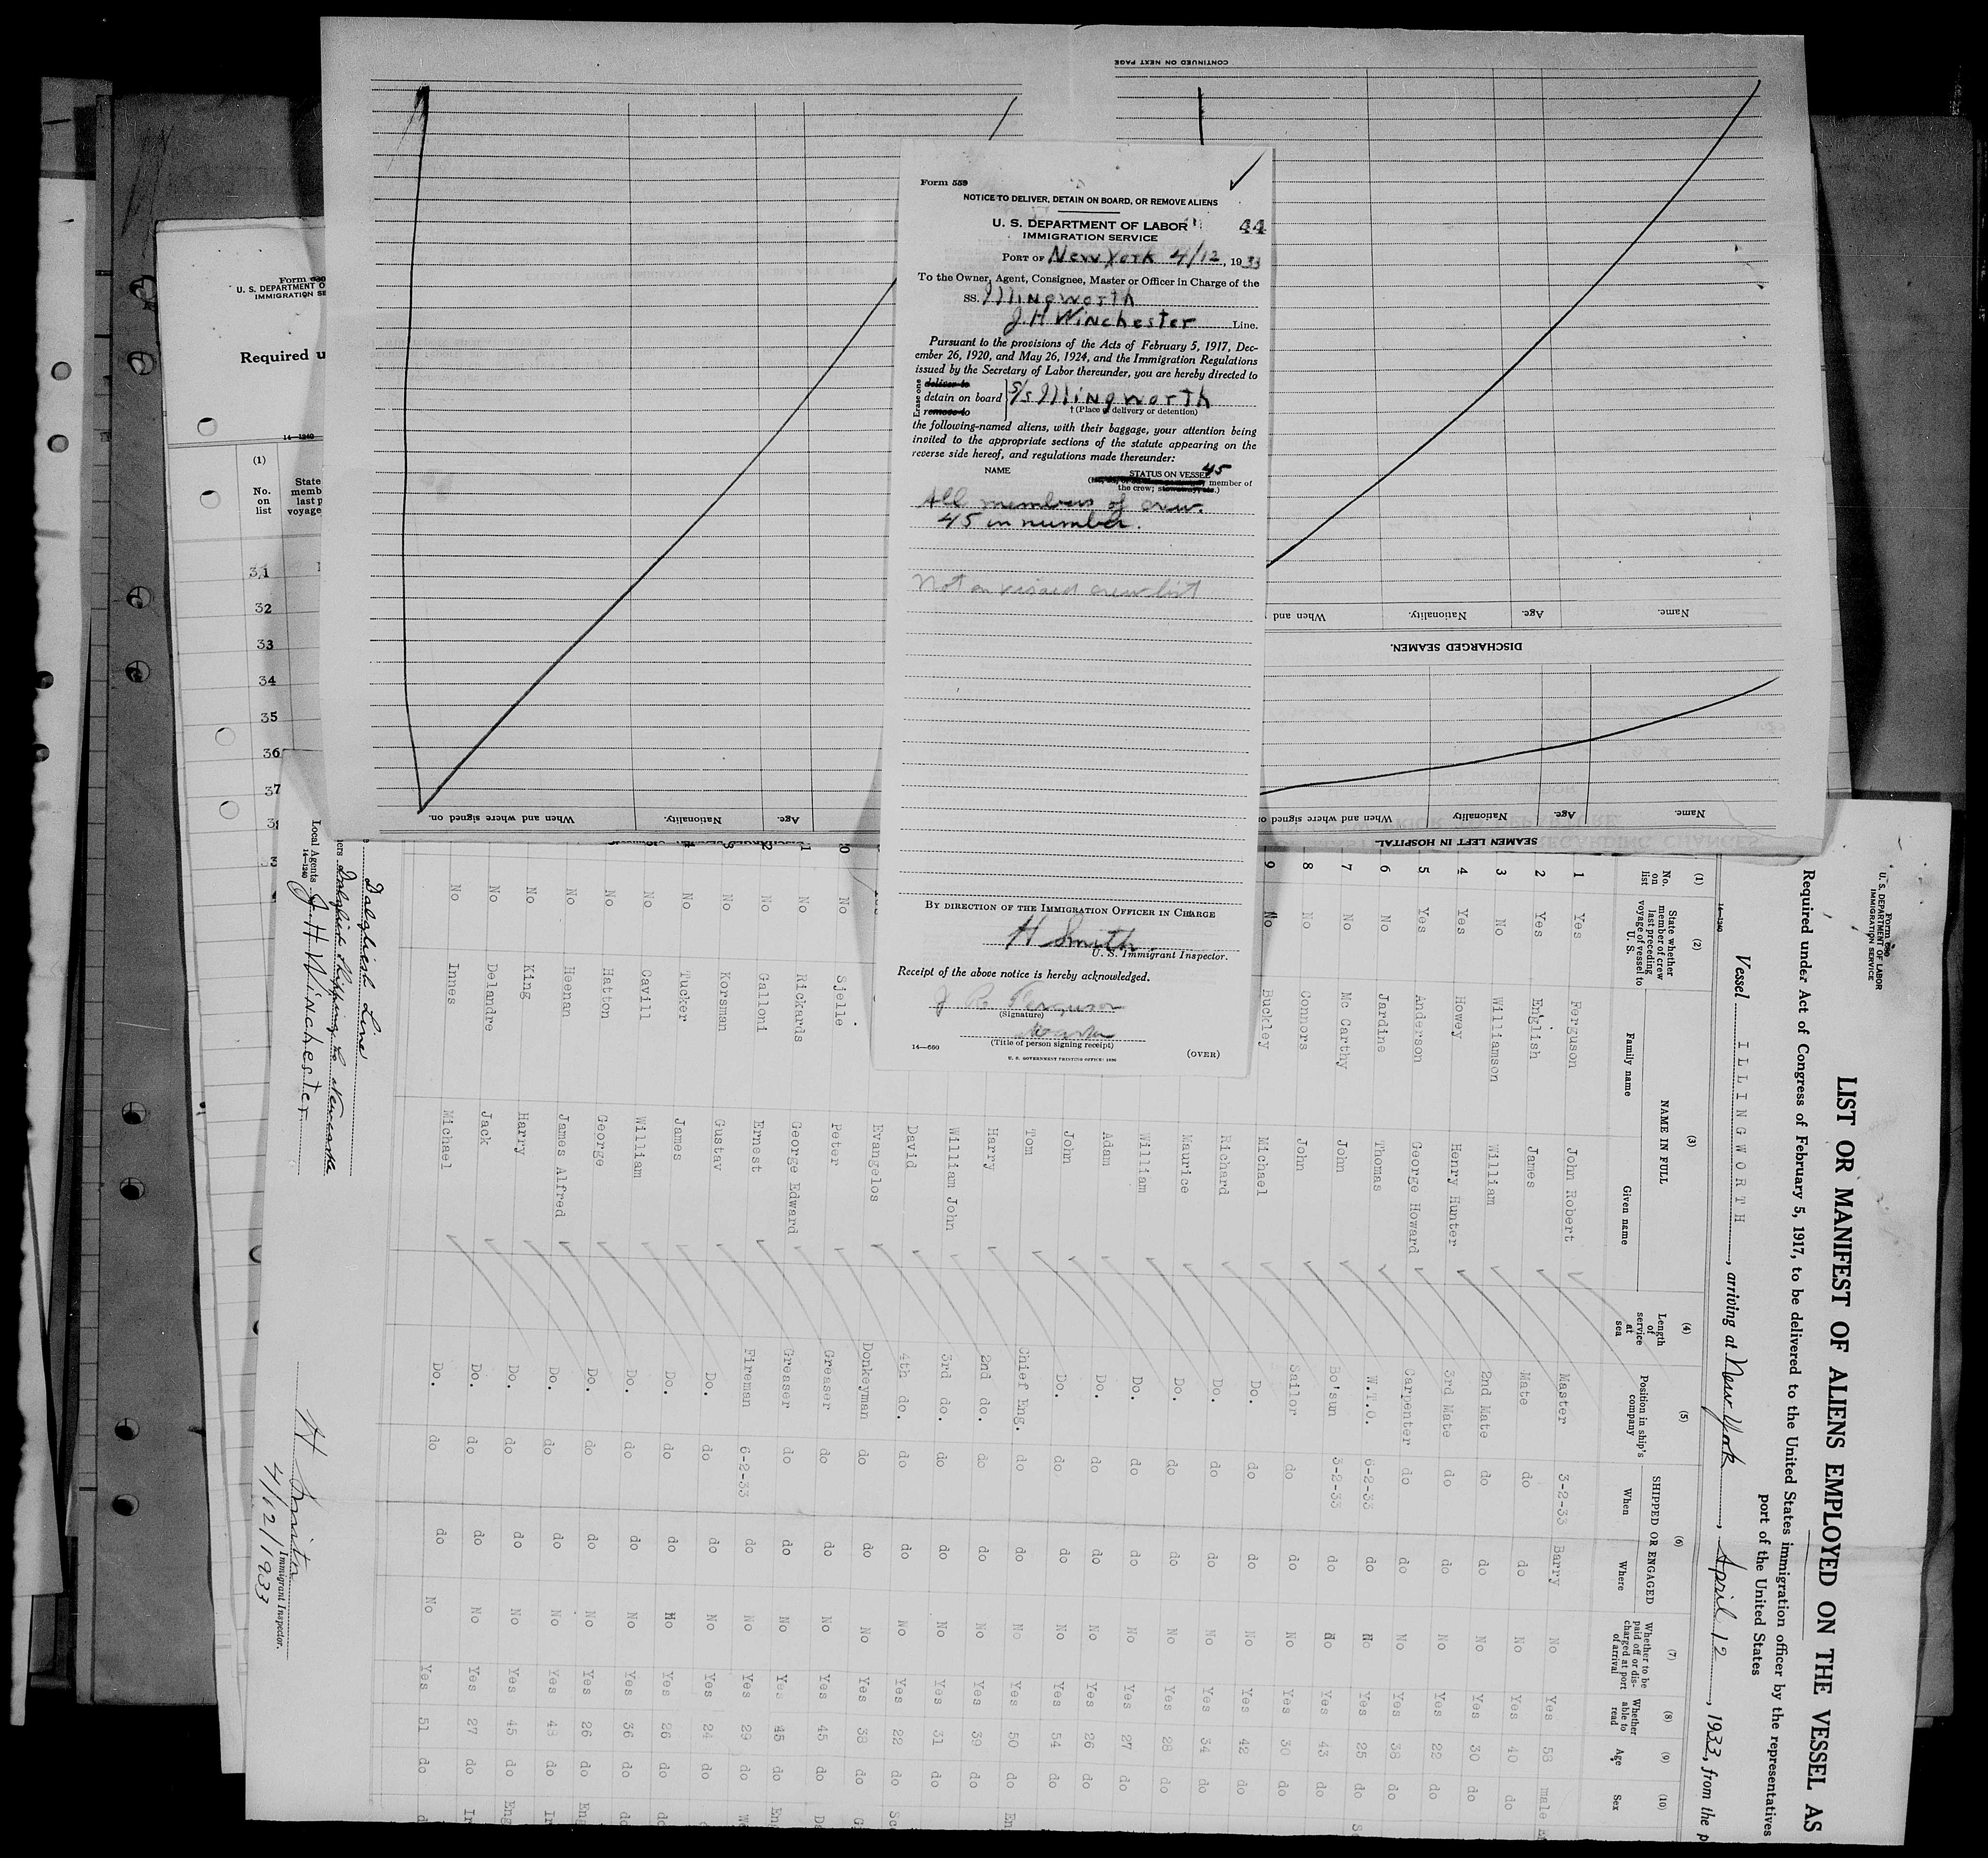 Form 559
NOTICE TO DELIVER, DETAIN ON BOARD, OR REMOVE ALIENS
U. S. DEPARTMENT OF LABOR
44
IMMIGRATION SERVICE
PORT OF New York 4/12, 1933
To the Owner, Agent, Consignee, Master or Officer in Charge of the
SS. Illingworth
J. H Winchester Line.
Pursuant to the provisions of the Acts of February 5, 1917, Dec-
ember 26, 1920, and May 26, 1924, and the Immigration Regulations
issued by the Secretary of Labor thereunder, you are hereby directed to
Erase one
deliver to
detain on board } S/s Illingworth
remove to
† (Place of delivery or detention)
the following-named aliens, with their baggage, your attention being
invited to the appropriate sections of the statute appearing on the
reverse side hereof, and regulations made thereunder:
NAME
STATUS ON VESSEL 45
member of
the crew;
All members of crew.
45 in number.
Not on visaed crew list
BY DIRECTION OF THE IMMIGRATION OFFICER IN CHARGE
H Smith
U. S. Immigrant Inspector.
Receipt of the above notice is hereby acknowledged.
J R Ferguson
(Signature)
Master
(Title of person signing receipt)
14—660
U. S. GOVERNMENT PRINTING OFFICE:
(OVER)
CONTINUED ON NEXT PAGE
Name. Age. Nationality. When and
DISCHARGED SEAMEN.
Name. Age. Nationality When and where signed on
Age. Nationality. When and where signed on.
SEAMEN LEFT IN HOSPITAL
Form 680
U. S. DEPARTMENT O
IMMIGRATION SE
Required u
14—1240
(1)
No. on list
State
memb
last p
voyage
31
32
33
34
35
36
37
Form 680
U. S. DEPARTMENT OF LABOR
IMMIGRATION SERVICE
LIST OR MANIFEST OF ALIENS EMPLOYED ON THE VESSEL AS
Required under Act of Congress of February 5, 1917, to be delivered to the United States immigration officer by the representatives
port of the United States
Vessel ILLINGWORTH, arriving at New York, April 12, 1933, from the p
14—1240
(1) (2) (3) (4) (5) (6) (7) (8) (9) (10)
No. on list
State whether member of crew last preceding voyage of vessel to U. S.
NAME IN FULL
Family name
Given name
Length of service at sea
Position in ship's company
SHIPPED OR ENGAGED
When
Where
Whether to be paid off or discharged at port of arrival
Whether able to read
Age
Sex
1 Yes Ferguson John Robert Master 3-2-33 Barry No Yes 58 male
2 Yes English James Mate do do No Yes 40 do
3 No Williamson William 2nd Mate do do No Yes 30 do
4 Yes Howey Henry Hunter 3rd Mate do do No Yes 22 do
5 Yes Anderson George Howard Carpenter do do No Yes 38 do
6 No Jardine Thomas W.T.O. 6-2-33 do No Yes 25 do
7 No Mc Carthy John Bo'sun 3-2-33 do No Yes 43 do
8 No Connors John Sailor do do No Yes 30 do
9 No Buckley Michael Do. do do No Yes 42 do
Richard Do. do do No Yes 34 do
Maurice Do. do do No Yes 28 do
William Do. do do No Yes 27 do
Adam Do. do do No Yes 26 do
John Do. do do No Yes 54 do
Tom Chief Eng. do do No Yes 50 do En
Harry 2nd do. do do No Yes 39 do
William John 3rd do. do do No Yes 31 do
David 4th do. do do No Yes 22 do Sc
Evangelos Donkeyman do do No Yes 38 do G
No Sjelle Peter Greaser do do No Yes 45 do Da
No Rickards George Edward Greaser do do No Yes 45 do Eng
No Galloni Ernest Fireman 6-2-33 do No Yes 29 do
No Korsman Gustav Do. do do No Yes 24 do
No Tucker James Do. do do No Yes 26 do do
No Cavill William Do. do do No Yes 36 do do
No Hatton George Do. do do No Yes 26 do Eng
No Heenan James Alfred Do. do do No Yes 48 do Ir
No King Harry Do. do do No Yes 45 do Eng
No Delandre Jack Do. do do No Yes 27 do Ir
No Innes Michael Do. do do No Yes 51 do d
Dalgliesh Line
Dalgliesh Shipping Co Newcastle
Local Agents J. H Winchester
14—1240
H Smith
Immigrant Inspector.
4/12/1933